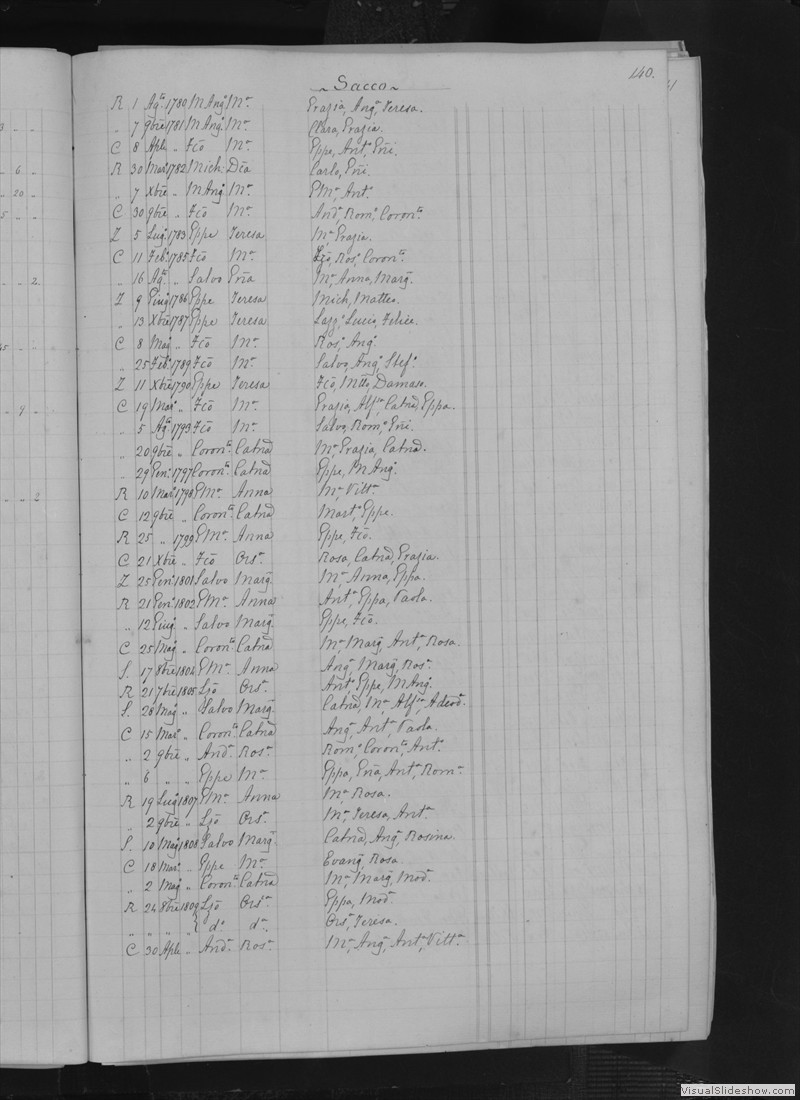 140.
Sacco
R 1 Ag.to 1780 M Ang.a M.a Grazia, Ang.a Teresa.
„ 7 9bre 1781 M Ang.o M.a Clara, Grazia.
C 8 Aple „ Fcō M.a Gppe, Ant.o Eñi.
R 30 Mar.o 1782 Mich. Dĉa Carlo, Eñi.
„ 7 Xbre „ M Ang.o M.a G M.a Ant.o
C 30 9bre „ Fcō M.a And.a Rom.o Coron.to
Z 5 Lug.o 1783 Gppe Teresa M.a Grazia.
C 11 Feb.o 1785 Fcō M.a Ros.o Coron.to
„ 16 Ag.to „ Salvo Eña M.a Anna, Marg.
Z 9 Giug.o 1786 Gppe Teresa Mich, Matteo.
„ 13 Xbre 1787 Gppe Teresa Lazz.o Lucio, Felice.
C 8 Mag. „ Fcō M.a Ros.o Ang.o
„ 25 Feb.o 1789 Fcō M.a Salvo, Ang.o Stef.o
Z 11 Xbre 1790 Gppe Teresa Fcō, Mtto, Damaso.
C 19 Mar.o „ Fcō M.a Grazia, Alf.a Catnã, Gppa.
„ 5 Ag.to 1793 Fcō M.a Salvo, Rom.o Eñi.
„ 20 9bre „ Coron.to Catnã M.a Grazia, Catnã.
„ 29 Gen.o 1797 Coron.to Catnã Gppe, M Ang.o
R 10 Mar.o 1798 G M.a Anna M.a Vitt.a
C 12 9bre „ Coron.to Catnã Mart.o Gppe.
R 25 „ 1799 G M.a Anna Gppe, Fcō.
C 21 Xbre „ Fcō Ors.a Rosa, Catnã, Grazia.
Z 25 Gen.o 1801 Salvo Marg. M.a Anna, Gppa.
R 21 Gen.o 1802 G M.a Anna Ant.a Gppa, Paola.
„ 12 Giug. „ Salvo Marg. Gppe, Fcō.
C 25 Mag. „ Coron.to Catnã M.a Marg. Ant.a Rosa.
S. 17 8bre 1804 G M.a Anna Ang.a Marg. Ros.a
R 21 7bre 1805 Lzō Ors.a Ant.o Gppe, M Ang.o
S. 28 Mag. „ Salvo Marg. Catnã, M.a Alf.a Adeod.a
C 15 Mar.o „ Coron.to Catnã Ang.a Ant.a Paola.
„ 2 9bre „ And.a Ros.a Rom.o Coron.to Ant.o
„ 6 „ „ Gppe M.a Gppa, Eña, Ant.a Rom.a
R 19 Lug.o 1807 G M.a Anna M.a Rosa.
„ 2 9bre „ Lzō Ors.a M.a Teresa, Ant.a
S. 10 Mag. 1808 Salvo Marg. Catnã, Ang.a Rosina.
C 18 Mar.o „ Gppe M.a Evang. Rosa.
„ 2 Mag. „ Coron.to Catnã M.a Marg. Mod.a
R 24 8bre 1809 Lzō Ors.a Gppa, Mod.a
„ „ „ „ { d.o d.a Ors.a Teresa.
C 30 Aple „ And.a Ros.a M.a Ang.a Ant.a Vitt.a
VisualSlideshow.com